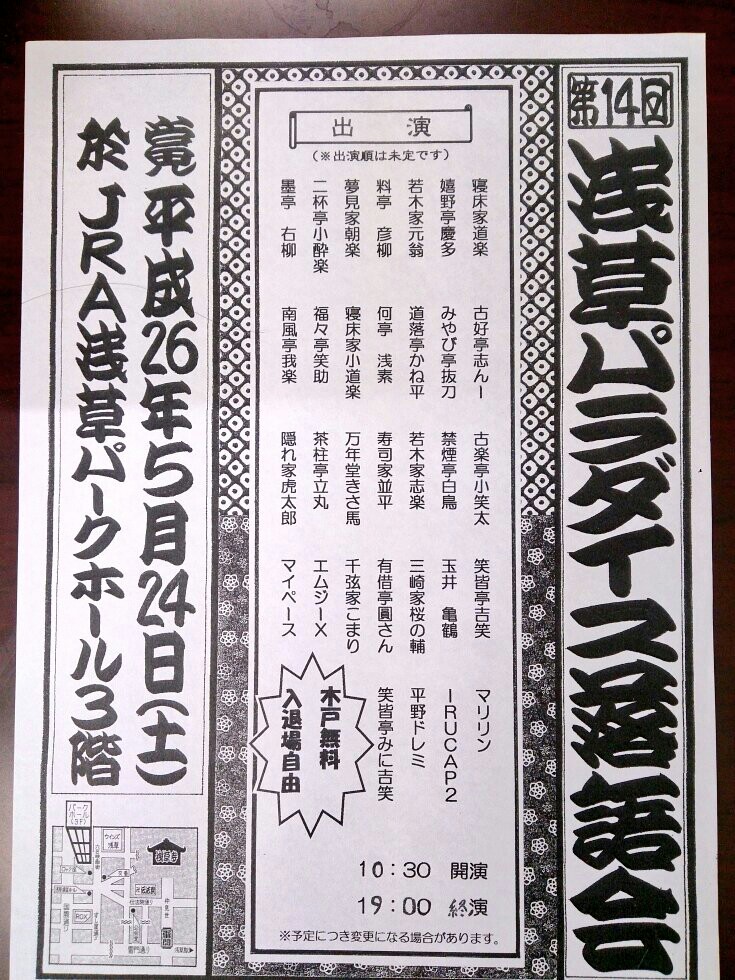 第14回
浅草パラダイス落語会
出 演
(※出演順は未定です)
寝床家道楽 古好亭志ん一 古楽亭小笑太 笑皆亭吉笑 マリリン
嬉野亭慶多 みやび亭抜刀 禁煙亭白鳥 玉井 亀鶴 IRUCAP2
若木家元翁 道落亭かね平 若木家志楽 三崎家桜の輔 平野ドレミ
料亭 彦柳 何亭 浅素 寿司家並平 有借亭圓さん 笑皆亭みに吉笑
夢見家朝楽 寝床家小道楽 万年堂きさ馬 千弦家こまり
二杯亭小酔楽 福々亭笑助 茶柱亭立丸 エムジーX
墨亭 右柳 南風亭我楽 隠れ家虎太郎 マイペース
木戸無料
入退場自由
10:30 開演
19:00 終演
※予定につき変更になる場合があります。
平成26年5月24日(土)
於 JRA浅草パークホール3階
パーク
ホール
(3F)
ウインズ
浅草
浅草寺
ROX
国際通り
雷門通り